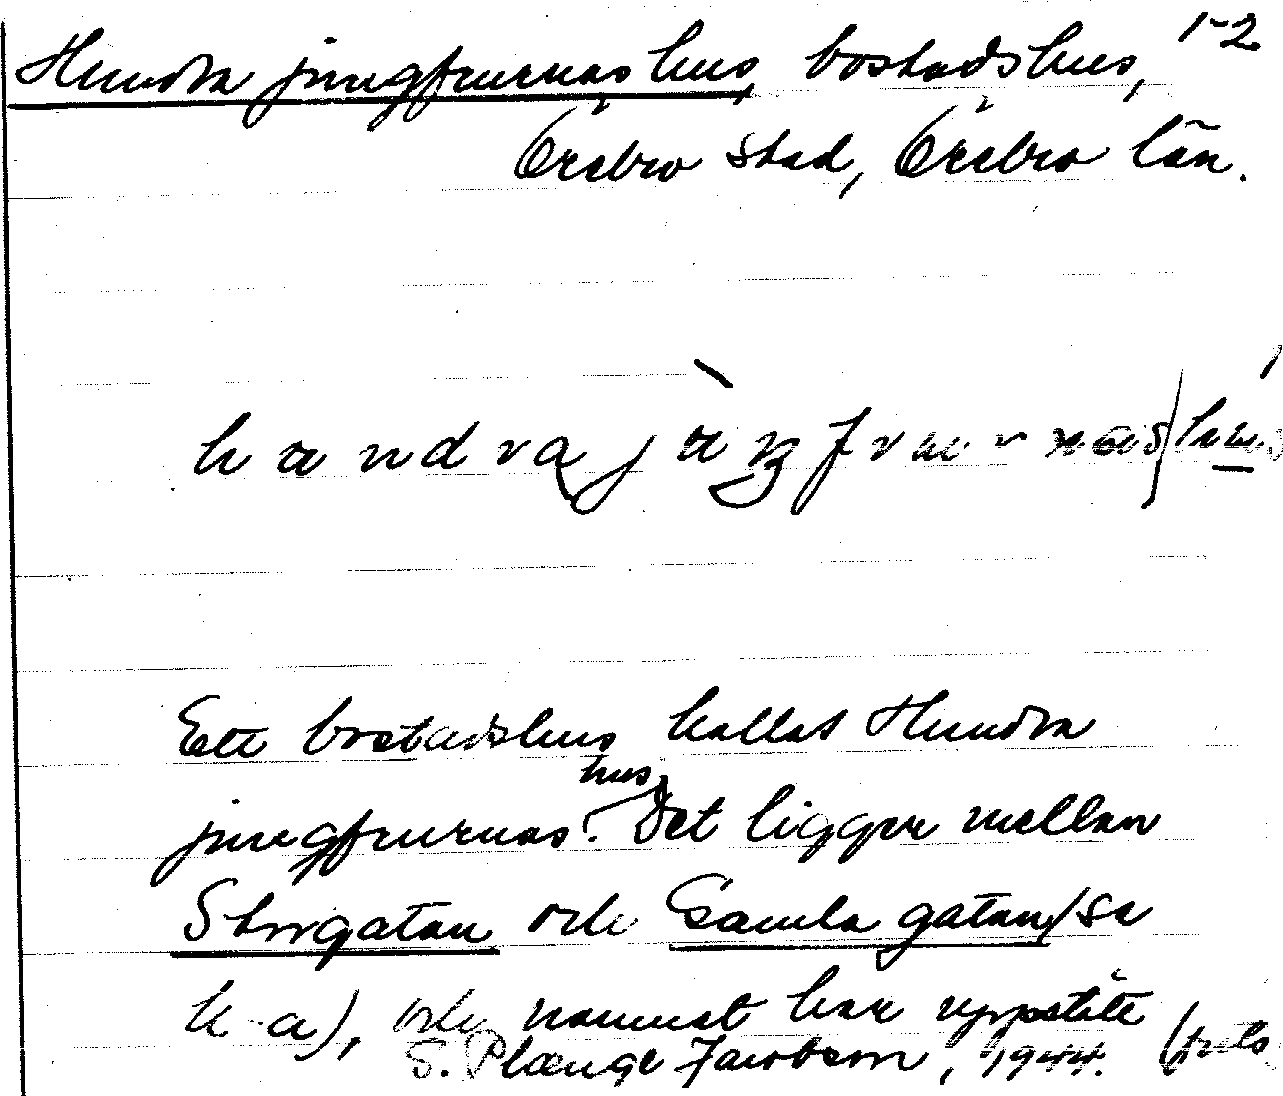 1-2
Hundra jungfrurnas hus, bostadshus,
Örebro stad, Örebro län.
Ett bostadshus kallas Hundra
hus
jungfrurnas. Det ligger mellan
Storgatan och Gamla gatan (se
k a), och namnet har uppstått
S. Plænge Jacobson, 1944.